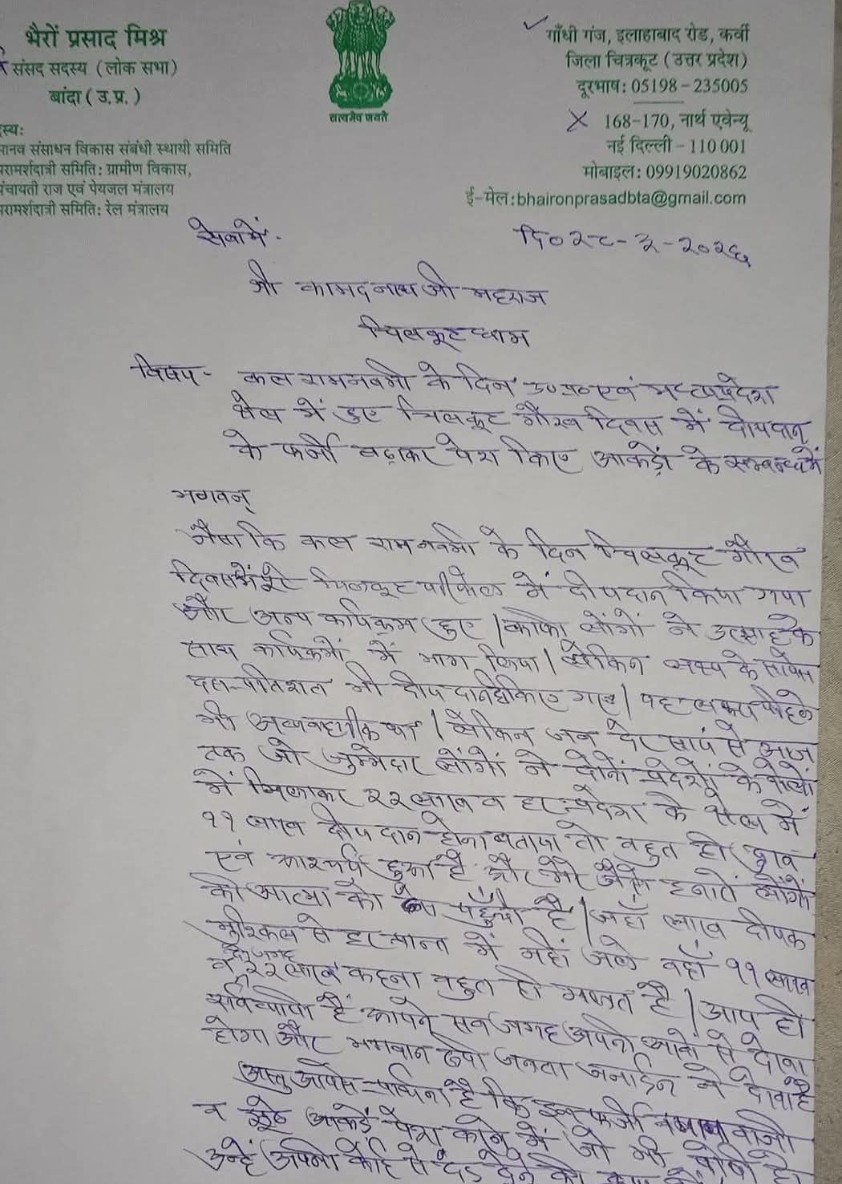 भैरों प्रसाद मिश्र
संसद सदस्य (लोक सभा)
बांदा (उ.प्र.)
स्य:
मानव संसाधन विकास संबंधी स्थायी समिति
परामर्शदात्री समिति: ग्रामीण विकास,
पंचायती राज एवं पेयजल मंत्रालय
परामर्शदात्री समिति: रेल मंत्रालय
सत्यमेव जयते
गाँधी गंज, इलाहाबाद रोड, कर्वी
जिला चित्रकूट (उत्तर प्रदेश)
दूरभाष: 05198-235005
168-170, नार्थ एवेन्यू
नई दिल्ली - 110 001
मोबाइल: 09919020862
ई-मेल:bhaironprasadbta@gmail.com
सेवा में -
दि० २८-३-२०२६
श्री कामदनाथ जी महराज
चित्रकूट धाम
विषय - कल रामनवमी के दिन उ०प्र० एवं मध्यप्रदेश
क्षेत्र में हुए चित्रकूट गौरव दिवस में दीपदान
के फर्जी बढ़ाकर पेश किए आकड़ों के सम्बन्ध में
भगवन्
जैसा कि कल रामनवमी के दिन चित्रकूट गौरव
दिवस में पूरे चित्रकूट परिक्षेत्र में दीपदान किया गया
और अन्य कार्यक्रम हुए | काफी लोगों ने उत्साह के
साथ कार्यक्रमों में भाग लिया | लेकिन लक्ष्य के सापेक्ष
दस प्रतिशत भी दीप दान नहीं किए गए | यह लक्ष्य पहले
भी अव्यवहारिक था | लेकिन जब देर सायं से आज
तक जो जुम्मेदार लोगों ने दोनों प्रदेशों के क्षेत्रों
में मिलाकर २२ लाख व उ०प्रदेश के क्षेत्र में
११ लाख दीप दान होना बताया तो बहुत ही दुःख
एवं आश्चर्य हुआ है और मेरे जैसे हजारों लोगों
की आत्मा को ठेस पहुँची है | जहाँ लाख दीपक
मुश्किल से हर प्रान्त में नहीं जले वहाँ ११ लाख
व २२ लाख कहना बहुत ही गलत है | आप ही
सर्वव्यापी हैं आपने सब जगह अपनी आंखों से देखा
होगा और भगवान रूपी जनता जनार्दन ने देखा है
अस्तु आपसे प्रार्थना है कि इस फर्जी
व झूठे आकड़े पेश करने में जो भी दोषी हो
उन्हें अपनी ओर से दंड देने की